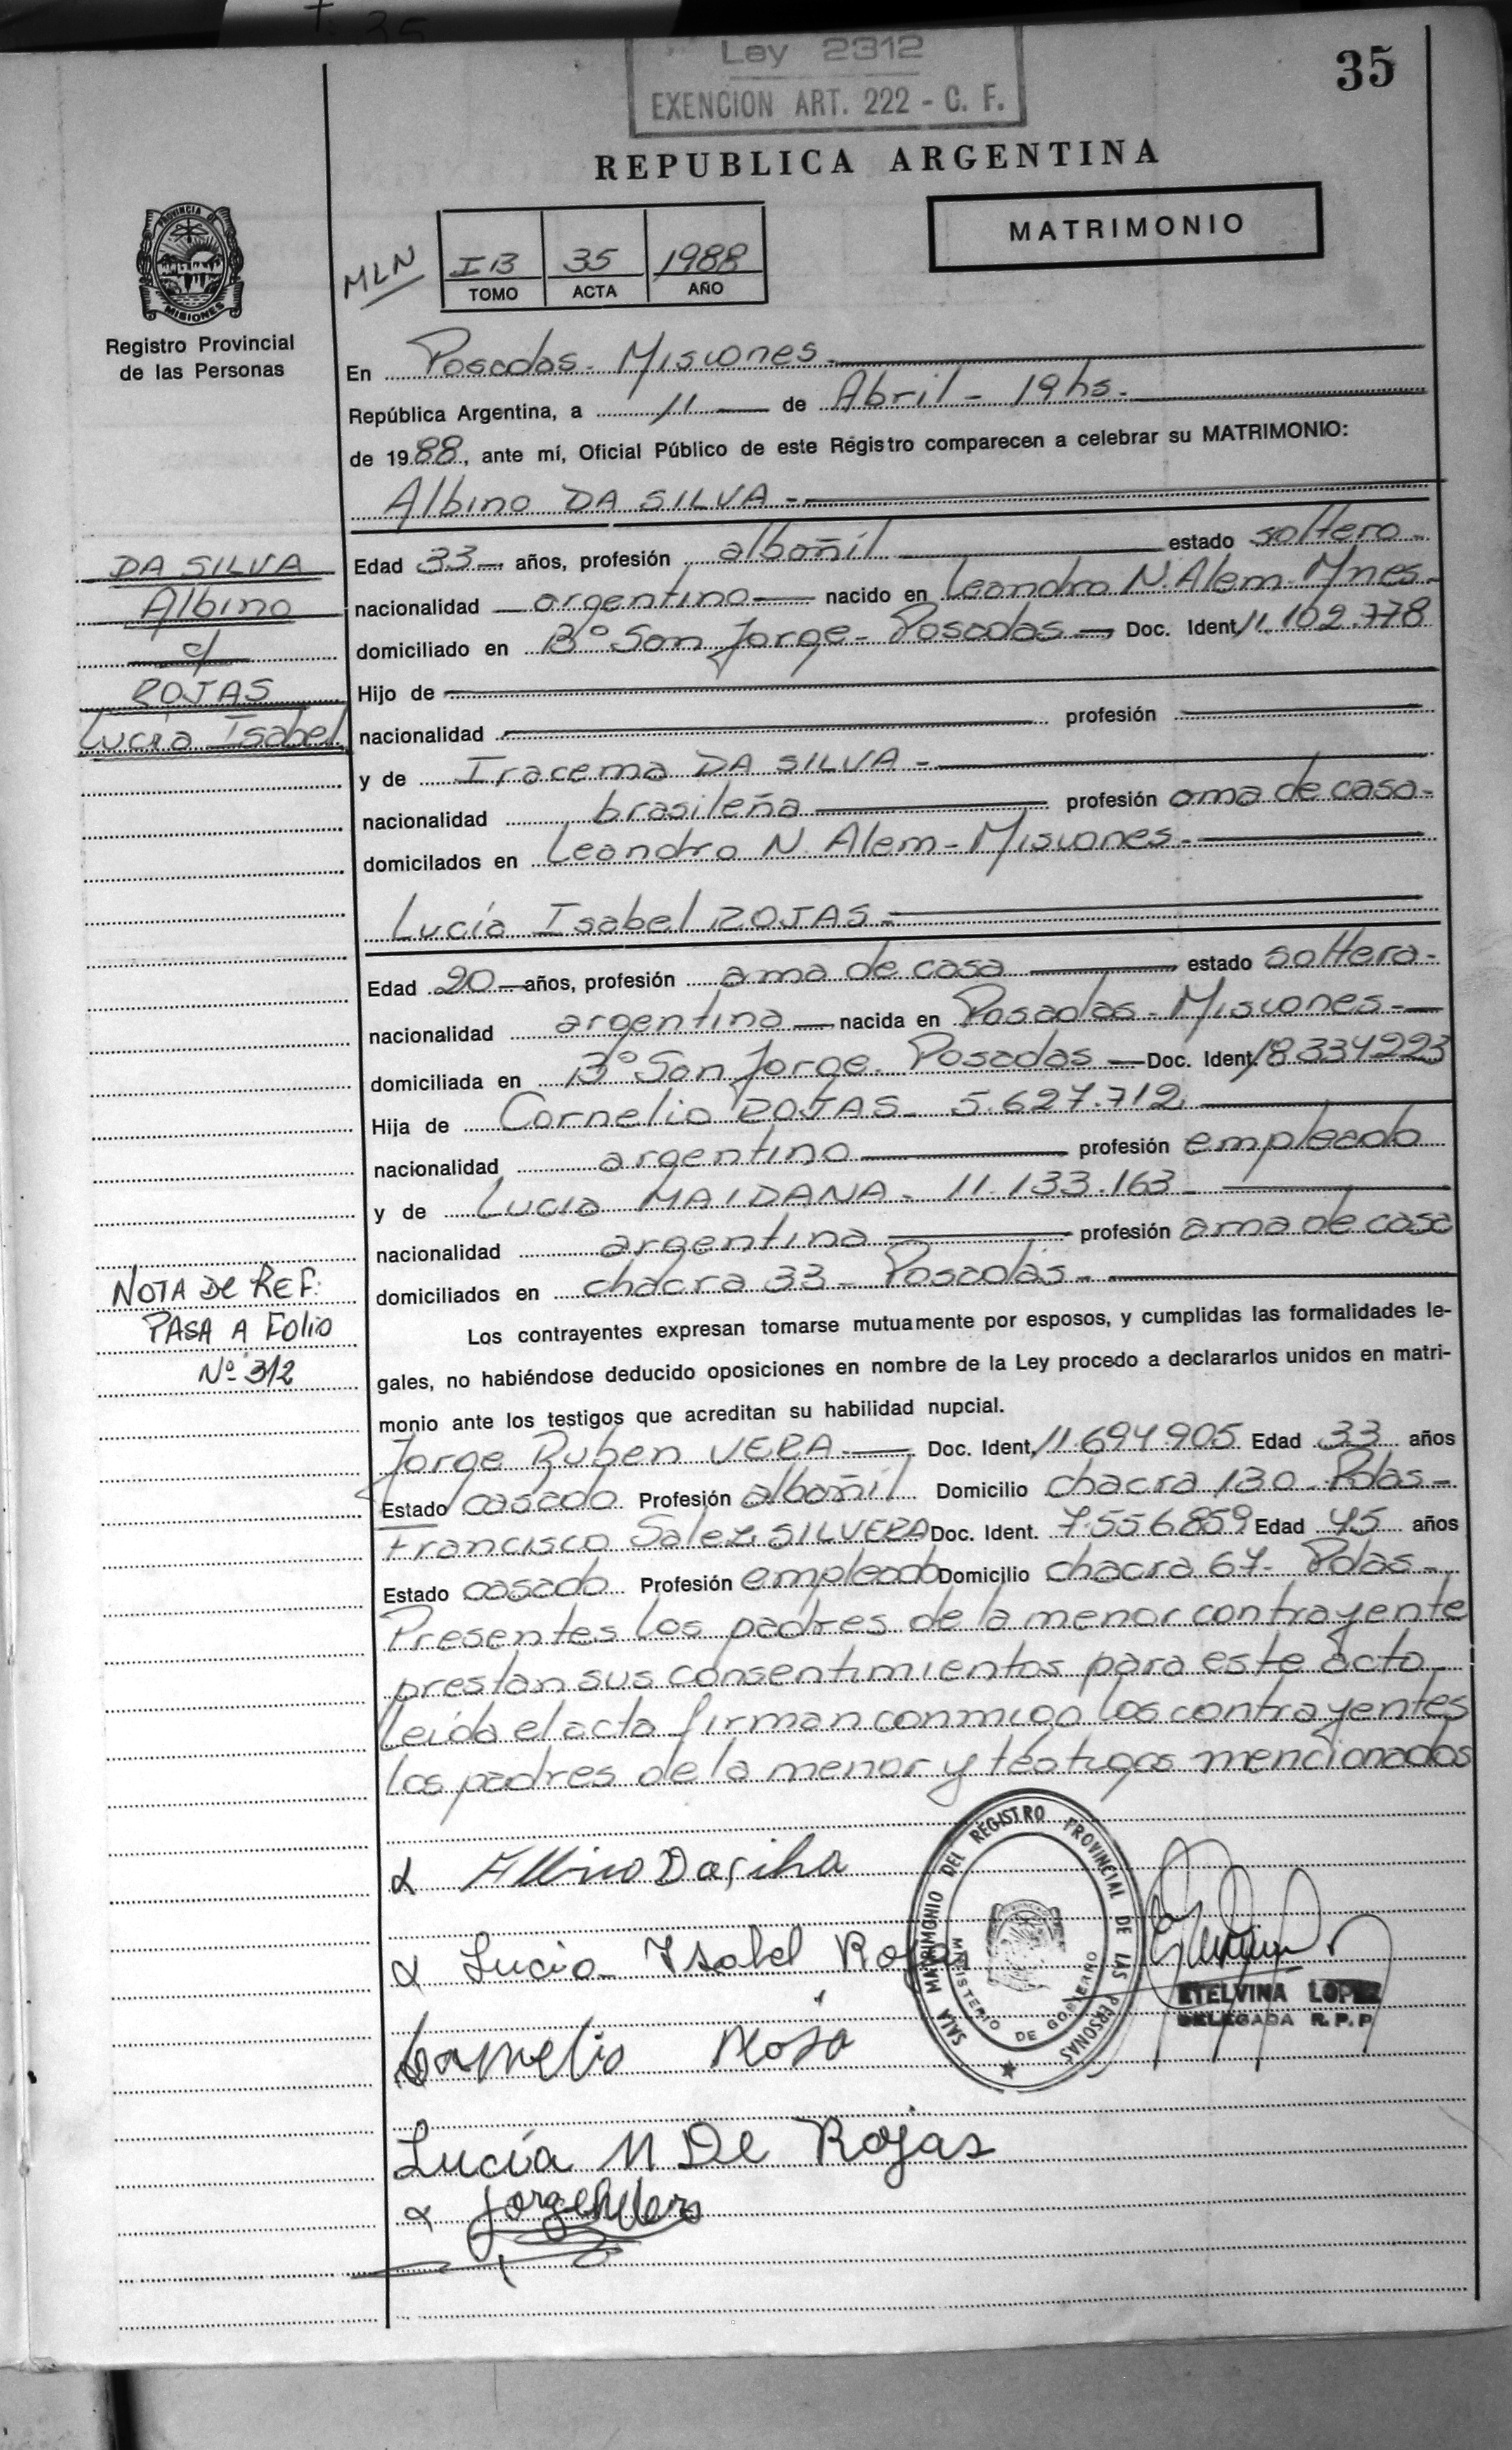 Ley 2312
EXENCION ART. 222 - C. F.
35
REPUBLICA ARGENTINA
MATRIMONIO
PROVINCIA DE
MISIONES
Registro Provincial
de las Personas
MLN
I B 35 1988
TOMO ACTA AÑO
En Posadas - Misiones -
República Argentina, a 11 de Abril - 19 hs.
de 1988, ante mí, Oficial Público de este Registro comparecen a celebrar su MATRIMONIO:
Albino DA SILVA -
DA SILVA
Albino
c/
ROJAS
Lucía Isabel
Edad 33 años, profesión albañil estado soltero -
nacionalidad argentino nacido en Leandro N. Alem - Mnes -
domiciliado en Bº San Jorge - Posadas - Doc. Ident. 11.102.778
Hijo de
nacionalidad profesión
y de Iracema DA SILVA -
nacionalidad brasileña profesión ama de casa -
domicilados en Leandro N. Alem - Misiones -
Lucía Isabel ROJAS -
Edad 20 años, profesión ama de casa estado soltera -
nacionalidad argentina nacida en Posadas - Misiones -
domiciliada en Bº San Jorge - Posadas - Doc. Ident. 18334223
Hija de Cornelio ROJAS - 5.627.712
nacionalidad argentino profesión empleado
y de Lucia MAIDANA - 11.133.163 -
nacionalidad argentina profesión ama de casa
domiciliados en chacra 33 - Posadas -
NOTA DE REF:
PASA A FOLIO
Nº 312
Los contrayentes expresan tomarse mutuamente por esposos, y cumplidas las formalidades le-
gales, no habiéndose deducido oposiciones en nombre de la Ley procedo a declararlos unidos en matri-
monio ante los testigos que acreditan su habilidad nupcial.
Jorge Ruben VERA - Doc. Ident. 11.694.905 Edad 33 años
Estado casado Profesión albañil Domicilio chacra 130 - Pdas -
Francisco Salez SILVERA Doc. Ident. 7.556.859 Edad 45 años
Estado casado Profesión empleado Domicilio chacra 67 - Pdas -
Presentes los padres de la menor contrayente
prestan sus consentimientos para este acto -
leída el acta firman conmigo los contrayentes
los padres de la menor y testigos mencionados
Albino Da silva
Lucia Ysabel Rojas
Cornelio Rosa
Lucía M De Rojas
Jorge R Vera
SALA MATRIMONIO DEL REGISTRO PROVINCIAL DE LAS PERSONAS
MINISTERIO DE GOBIERNO
ETELVINA LOPEZ
DELEGADA R.P.P